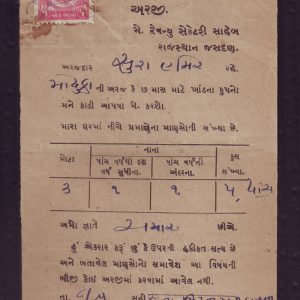 અરજી.
મે. રેવન્યુ સેક્રેટરી સાહેબ
રાજસ્થાન જસદણ.
અરજદાર સુરા અમિર રહે.
ની અરજ કે છ માસ માટે ખાંડના કુપનો
મને કાઢી આપવા મે. કરશો.
મારા ઘરમાં નીચે પ્રમાણેના માણસોની સંખ્યા છે.
મોટા
નાના
પાંચ વર્ષથી દશ વર્ષ સુધીના.
પાંચ વર્ષની અંદરના.
કુલ સંખ્યા.
૩ ૧ ૧ ૫ પાંચ
અમો જાતે છીએ.
હું એકરાર કરૂં છું કે ઉપરની હકીકત સત્ય છે
અને બતાવેલ માણસોનો સમાવેશ આ વિષયની
બીજી કોઇ અરજીમાં કરવામાં આવેલ નથી.
તા સહી